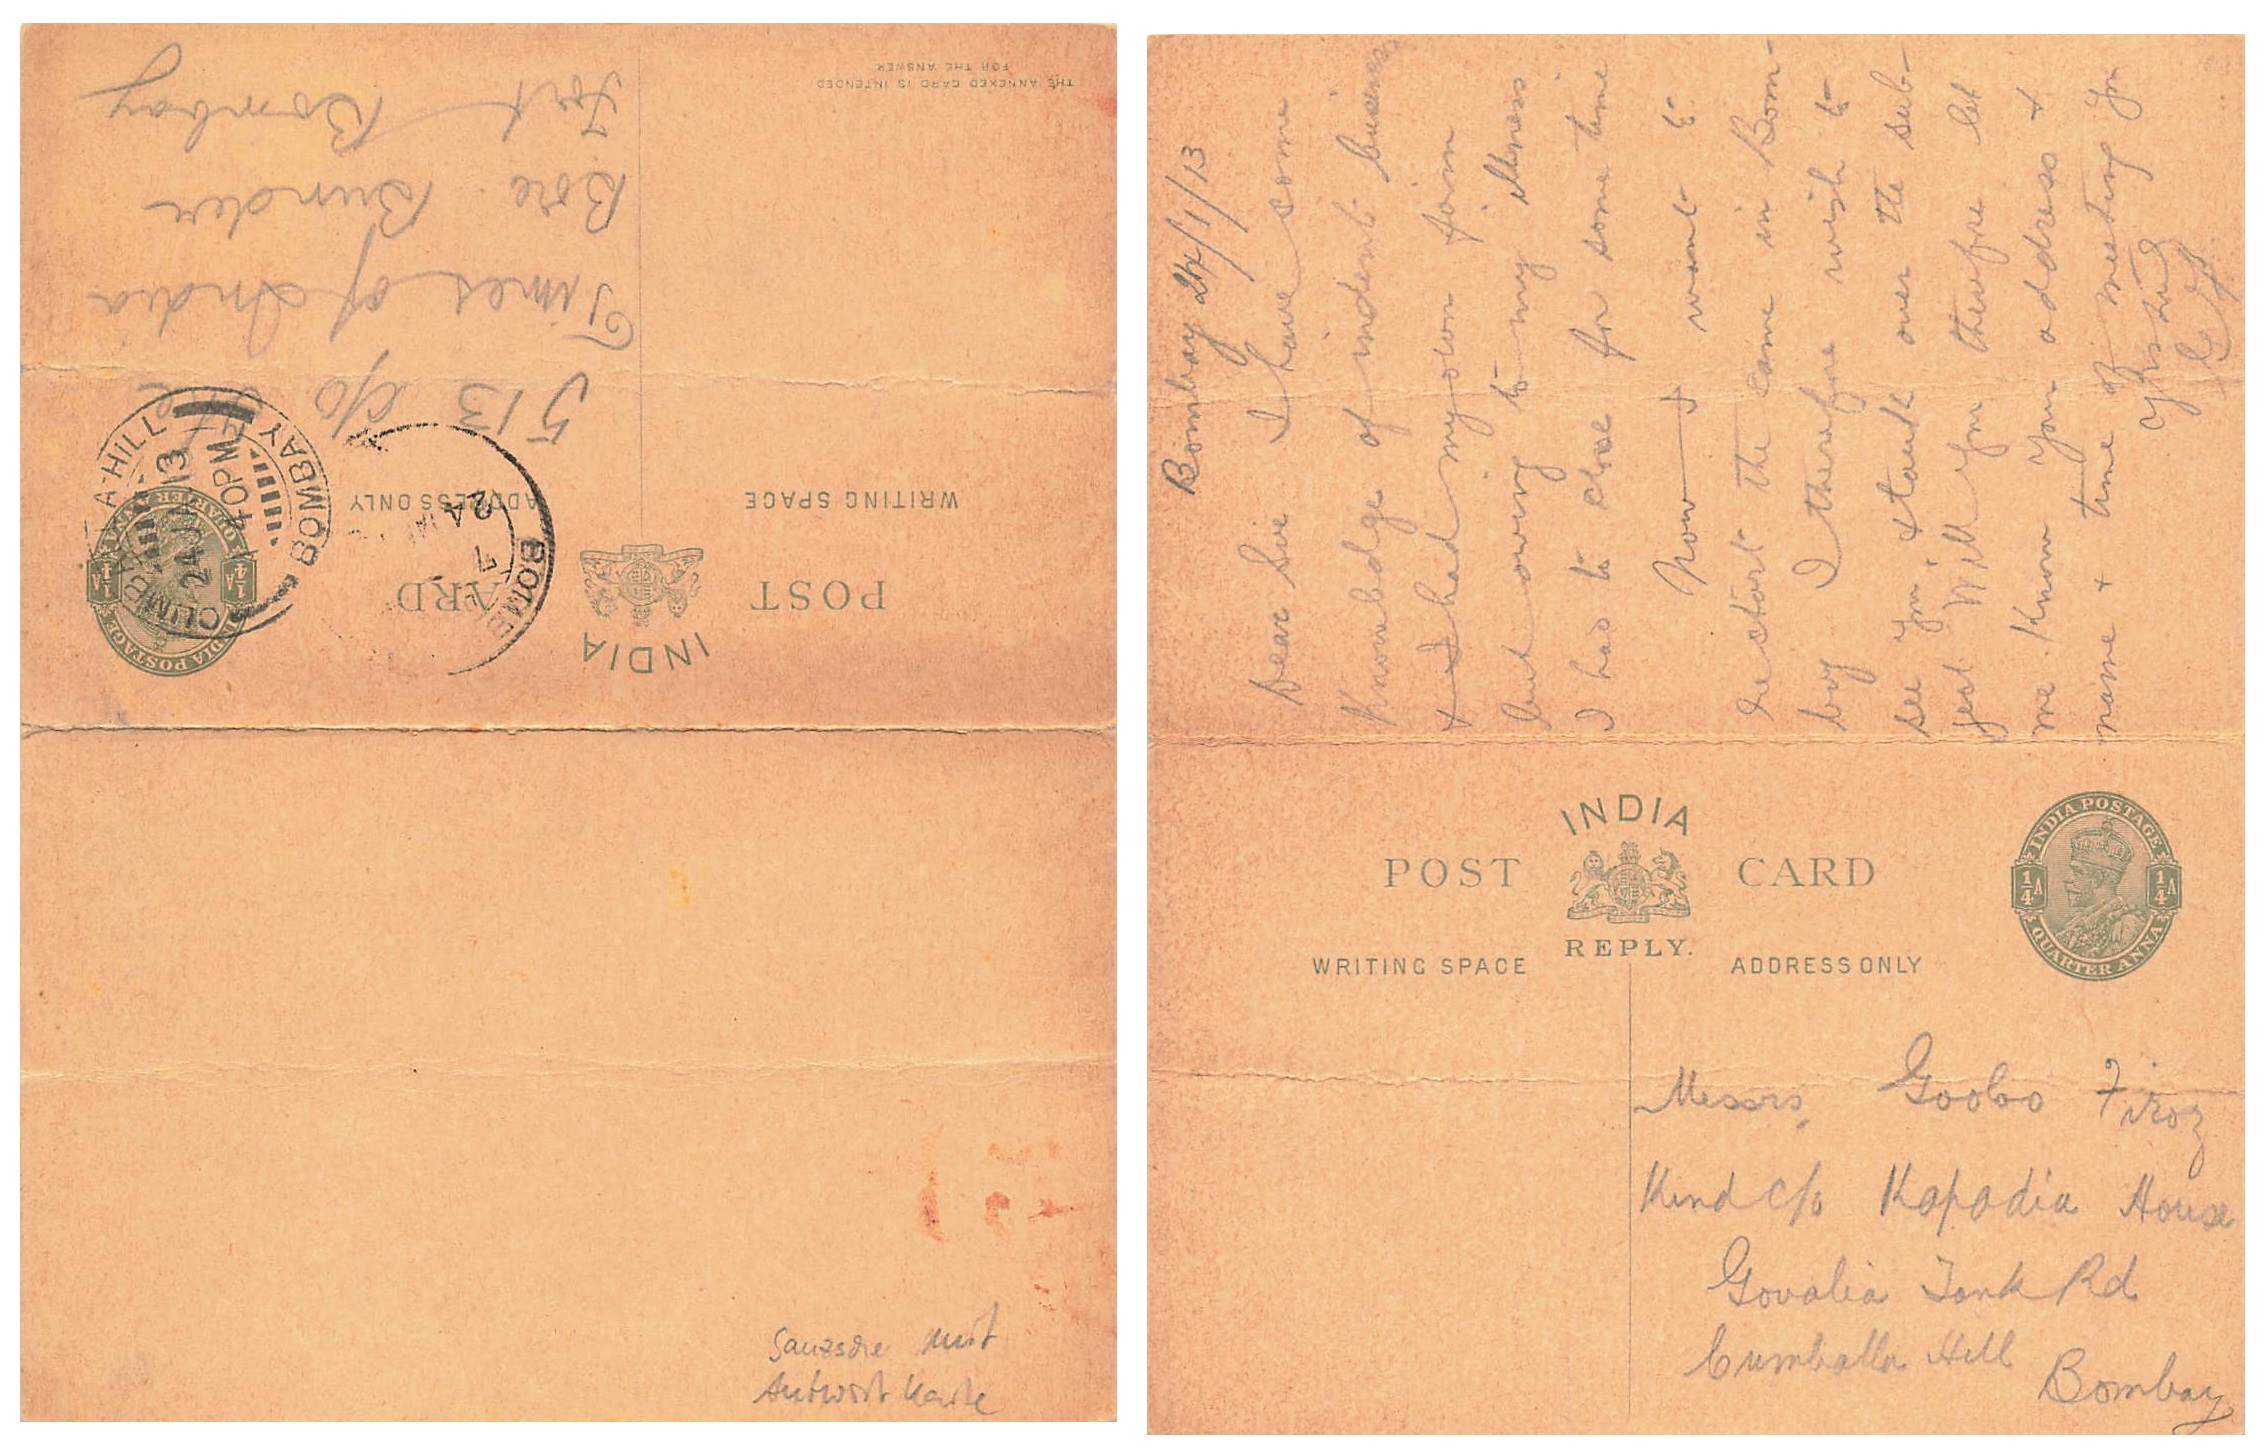 THE ANNEXED CARD IS INTENDED
FOR THE ANSWER
INDIA
POST CARD
WRITING SPACE
ADDRESS ONLY
INDIA POSTAGE
¼A ¼A
QUARTER ANNA
CUMBALLA-HILL
24 JA 13
4 40PM
BOMBAY
BOMB
7
513 c/o the
Times of India
Bore Bunder
Fort Bombay
Ganzsache mit
Antwort Karte
Bombay 24/1/13
Dear Sir I have some
Knowledge of indent business
& I had my own firm
but owing to my illness
I has to close for some time
Now I want to
restart the same in Bom-
bay I therefore wish to
see you & taulk over the sub-
ject Will you therefore let
me Know your address &
name & time of meeting you
Yrs truly
INDIA
POST CARD
REPLY.
WRITING SPACE
ADDRESS ONLY
INDIA POSTAGE
¼A ¼A
QUARTER ANNA
Messrs Gooloo Firoz
Kind c/o Kapadia House
Govalia Tank Rd
Cumballa Hill
Bombay